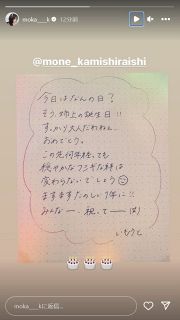 moka___k 12分前
@mone_kamishiraishi
今日はなんの日？
そう、姉上の誕生日!!
すっかり大人だわねぇ
おめでとう。
この先何年経っても
穏やかなフシギな絆は
変わらないでしょう
ますますたのしい1年に!!
みんなー 祝ってー（笑）
いもうと
moka___kに返信...